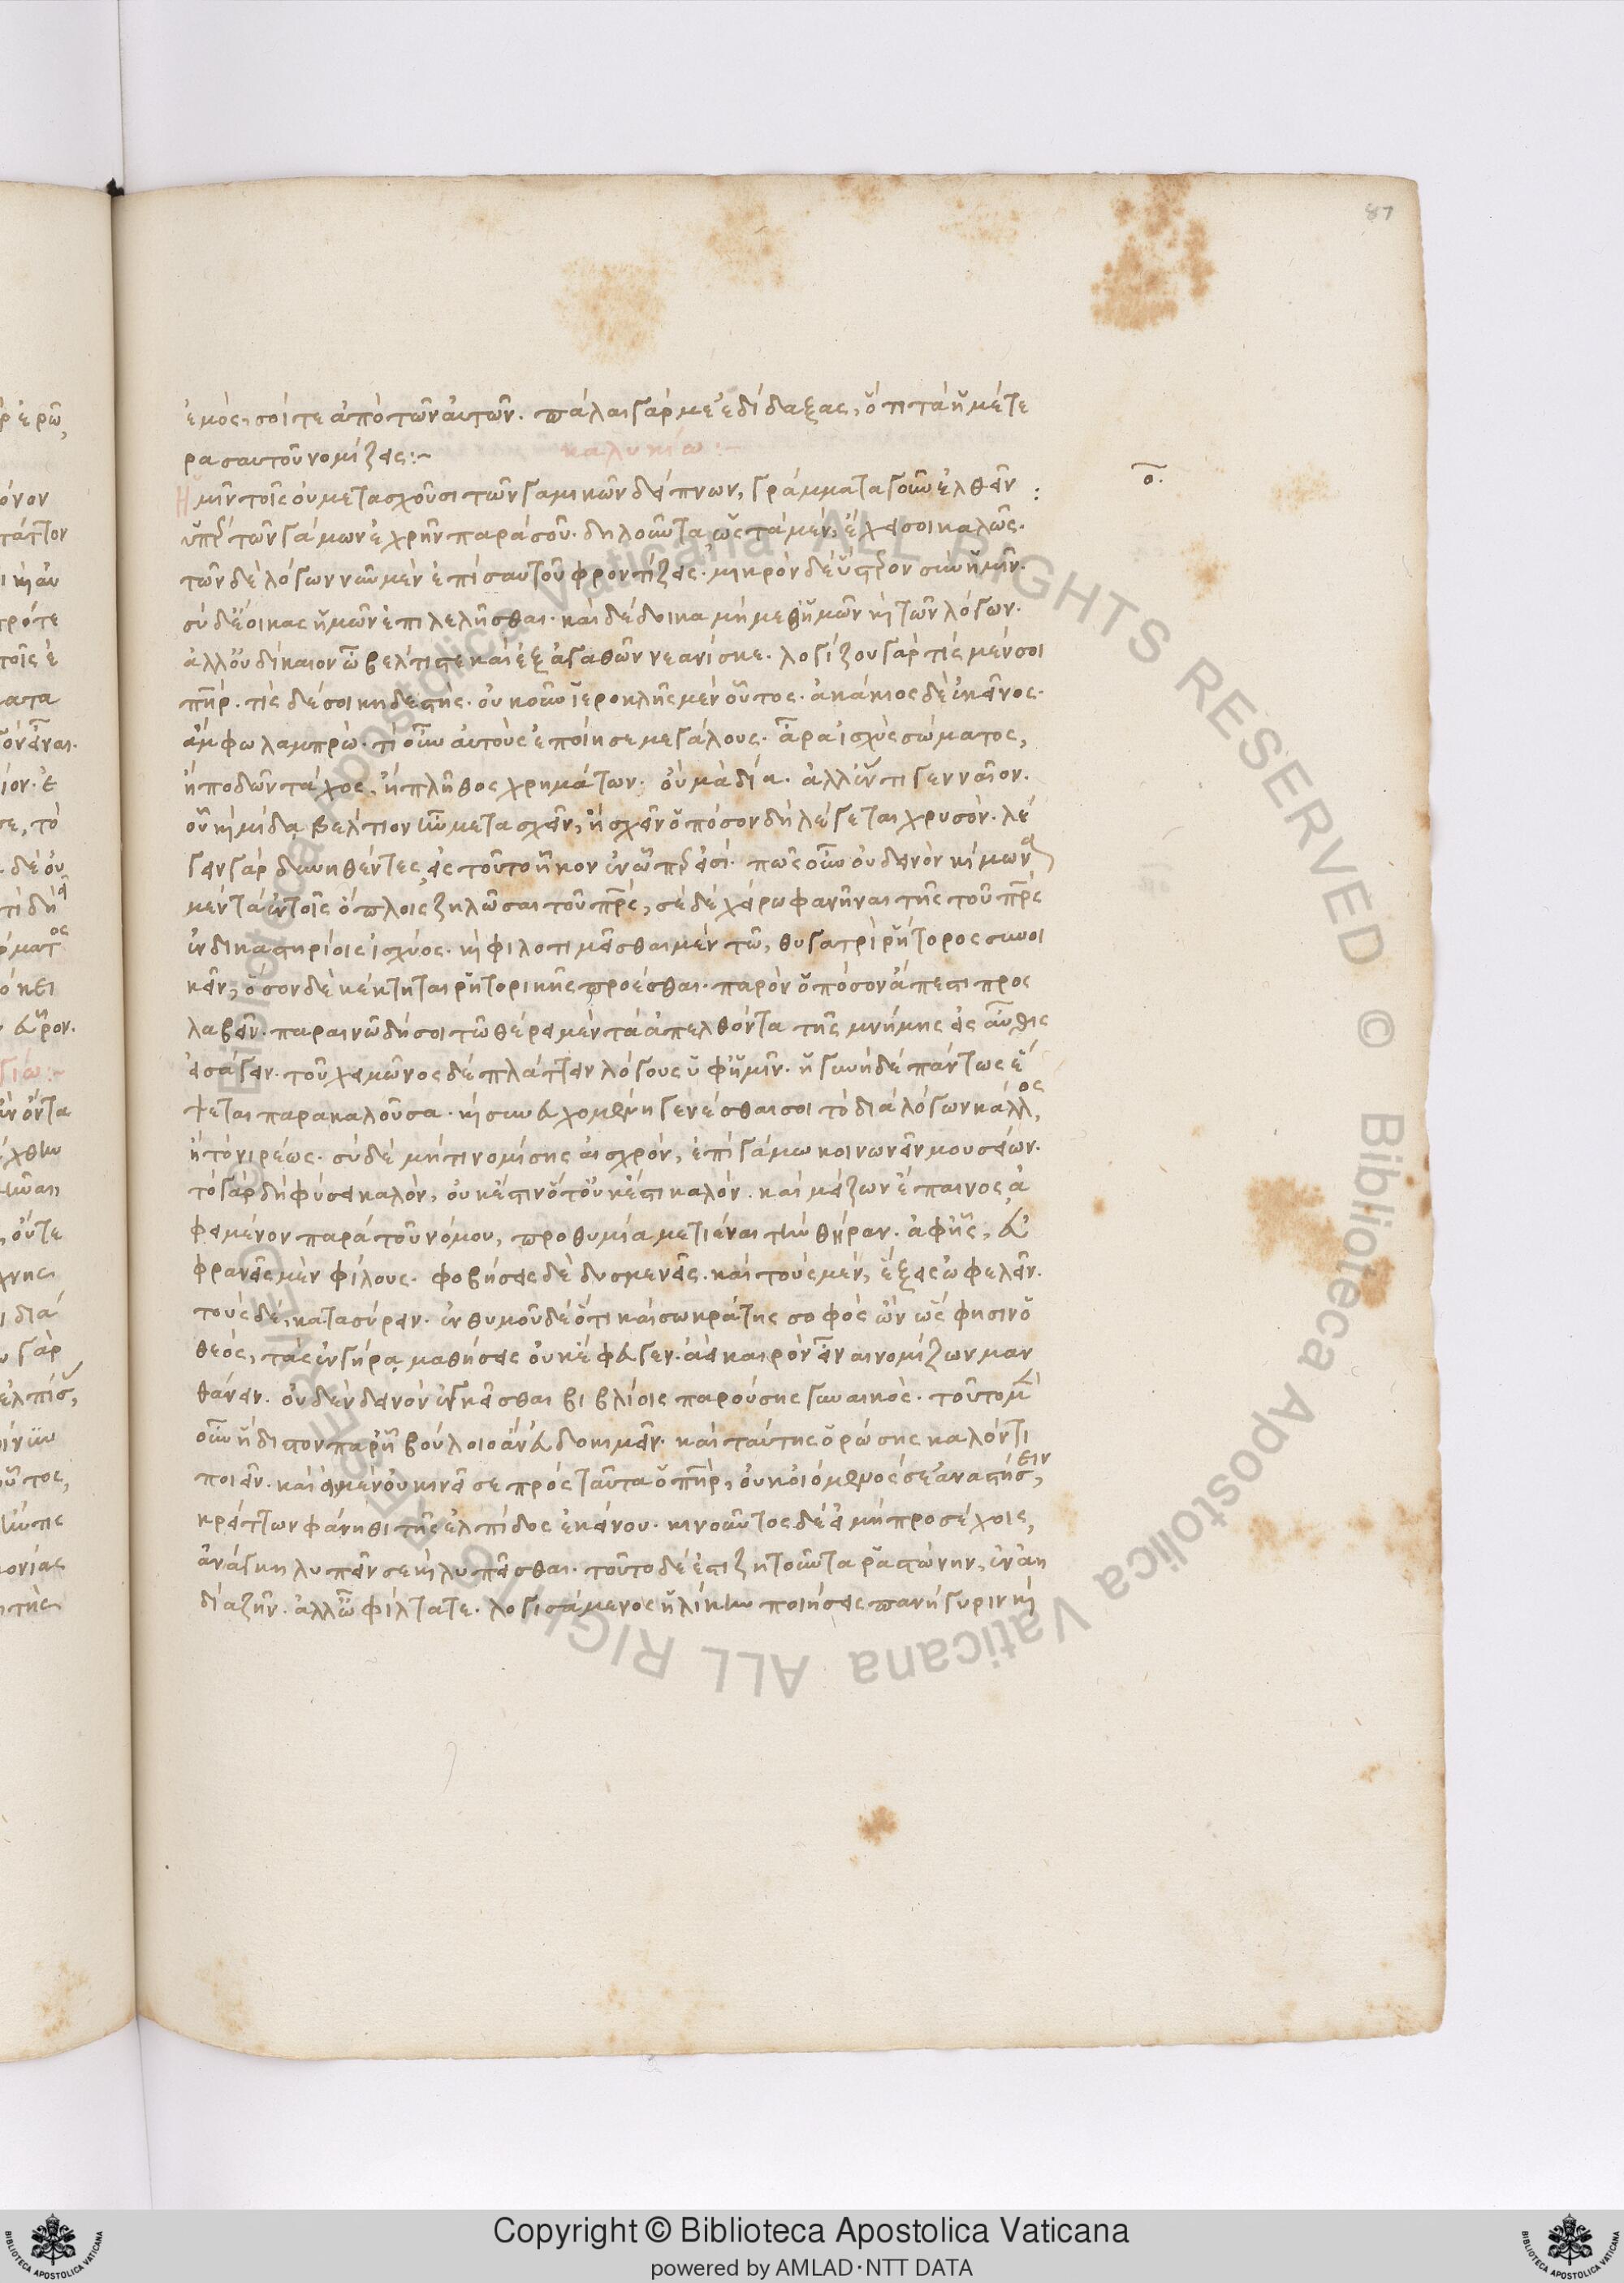 87
ἐμὸς, σοί τε ἀπὸ τῶν αὐτῶν. πάλαι γάρ με ἐδίδαξας, ὅτι τὰ ἡμέτε
ρα σαυτοῦ νομίζεις:~
καλυκίω:~
ο.
Ἡμῖν τοῖς οὐ μετασχοῦσι τῶν γαμικῶν δείπνων, γράμματα γοῦν ἐλθεῖν :
ὑπὲρ τῶν γάμων ἐχρῆν παρὰ σοῦ. δηλοῦντα, ὡς τὰ μὲν, ἔχει σοι καλῶς.
τῶν δὲ λόγων νῦν μὲν ἐπὶ σαυτοῦ φροντίζεις. μικρὸν δὲ ὕστερον σὺν ἡμῖν.
σὺ δὲ ἔοικας ἡμῶν ἐπιλελῆσθαι. καὶ δέδοικα μὴ μεθ' ἡμῶν κὴ τῶν λόγων.
ἀλλ' οὐ δίκαιον ὦ βέλτιστε καὶ ἐξ ἀγαθῶν νεανίσκε. λογίζου γὰρ τίς μέν σοι
πηρ. τίς δέ σοι κηδεστής. οὐκοῦν ἱεροκλῆς μὲν οὗτος. ἀκάκιος δὲ ἐκεῖνος.
ἄμφω λαμπρώ. τί οὖν αὐτοὺς ἐποίησε μεγάλους. ἆρα ἰσχὺς σώματος,
ἢ ποδῶν τάχος, ἢ πλῆθος χρημάτων. οὐ μὰ δία. ἀλλ' ἕν τι γενναῖον.
οὗ κὴ μίδᾳ βέλτιον ἦν μετασχεῖν, ἢ σχεῖν ὁπόσον δὴ λέγεται χρυσόν. λέ
γειν γὰρ δυνηθέντες, εἰς τοῦτο ἧκον ἐν ᾧπέρ εἰσι. πῶς οὖν οὐ δεινὸν κίμων
μὲν τὰ ἐν τοῖς ὅπλοις ζηλῶσαι τοῦ πρς, σὲ δὲ χείρω φανῆναι τῆς τοῦ πρς
ἐν δικαστηρίοις ἰσχύος. κὴ φιλοτιμεῖσθαι μὲν τῶ, θυγατρὶ ῥήτορος συνοι
κεῖν, ὅσον δὲ κέκτηται ῥητορικῆς προέσθαι. παρὸν ὁπόσον ἄπεστι προς
λαβεῖν. παραινῶ δή σοι τῶ θέρει μὲν τὰ ἀπελθόντα τῆς μνήμης εἰς αὖθις
εἰσάγειν. τοῦ χειμῶνος δὲ πλάττειν λόγους ὑφ' ἡμῖν. ἡ γυνὴ δὲ πάντως ἕ
ψεται παρακαλοῦσα. κὴ συνευχομένη γενέσθαι σοι τὸ διὰ λόγων κάλλος,
ἢ τὸ νιρέως. σὺ δὲ μήτι νομίσης αἰσχρὸν, ἐπὶ γάμω κοινωνεῖν μουσείων.
τὸ γὰρ δὴ φύσει καλὸν, οὐκ ἔστιν ὅτ' οὐκ ἔστι καλόν. καὶ μείζων ἔπαινος, ἀ
φειμένον παρὰ τοῦ νόμου, προθυμία μετιέναι τὴν θήραν. ἀφ' ἧς, εὐ
φρανεῖς μὲν φίλους. φοβήσεις δὲ δυσμενεῖς. καὶ τοὺς μὲν, ἕξεις ὠφελεῖν.
τοὺς δὲ, κατασύρειν. ἐνθυμοῦ δὲ ὅτι καὶ σωκράτης σοφὸς ὢν ὥς φησιν ὁ
θεὸς, τὰς ἐν γήρᾳ μαθήσεις οὐκ ἔφευγεν. ἀεὶ καιρὸν εἶναι νομίζων μαν
θάνειν. οὐδὲν δεινὸν ἐγκεῖσθαι βιβλίοις παρούσης γυναικός. τοῦτο μ
οὖν ἥδιστον παρ' ᾗ βούλοιο ἂν εὐδοκιμεῖν. καὶ ταύτης ὁρώσης καλόν τι
ποιεῖν. καὶ εἰ μὲν οὐ κινεῖ σε πρὸς ταῦτα ὁ πηρ, οὐκ οἰόμενός σε ἀναστήσειν,
κρείττων φάνηθι τῆς ἐλπίδος ἐκείνου. κινοῦντος δὲ εἰ μὴ προσέχοις,
ἀνάγκη λυπεῖν σε κὴ λυπεῖσθαι. τοῦτο δέ ἐστι ζητοῦντα ῥαστώνην, ἐν ἄτη
διαζῆν. ἀλλ' ὦ φίλτατε. λογισάμενος ἡλίκην ποιήσεις πανήγυριν κὴ
Copyright © Biblioteca Apostolica Vaticana
powered by AMLAD・NTT DATA